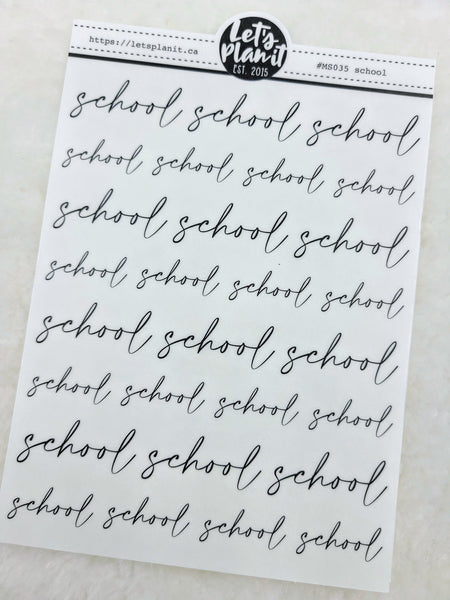 https://letsplanit.ca
Let's
Planit
EST. 2015
#MS035 school
school school school
school school school school
school school school
school school school school
school school school
school school school school
school school school
school school school school